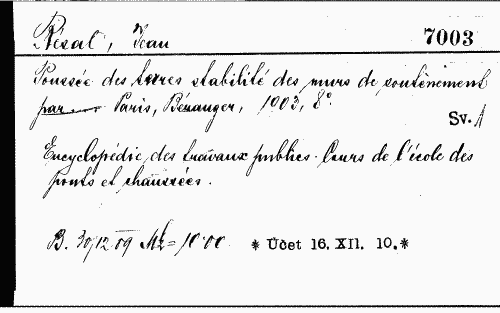 Résal, Jean 7003
Poussée des terres stabilité des murs de soutènement
par Paris, Béranger, 1903, 8°.
Sv. A
Encyclopédie des travaux publics. Cours de l'école des
ponts et chaussées.
B. 30/12 09 Mk = 10.00. * Účet 16. XII. 10. *